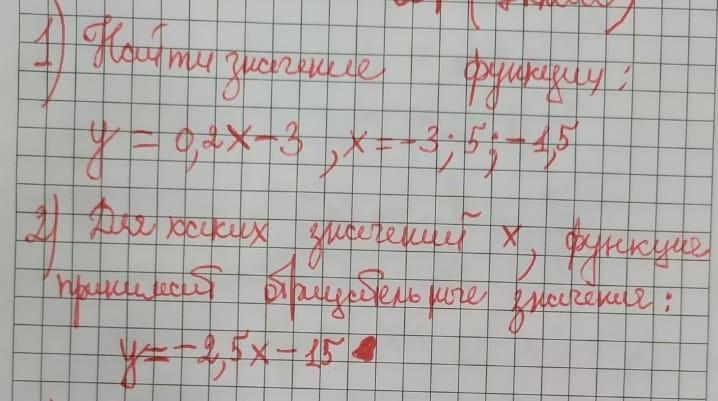 1) Найти значение функции:
y = 0,2x - 3 , x = -3; 5; -1,5
2) Для каких значений x, функция
принимает отрицательные значения:
y = -2,5x - 15